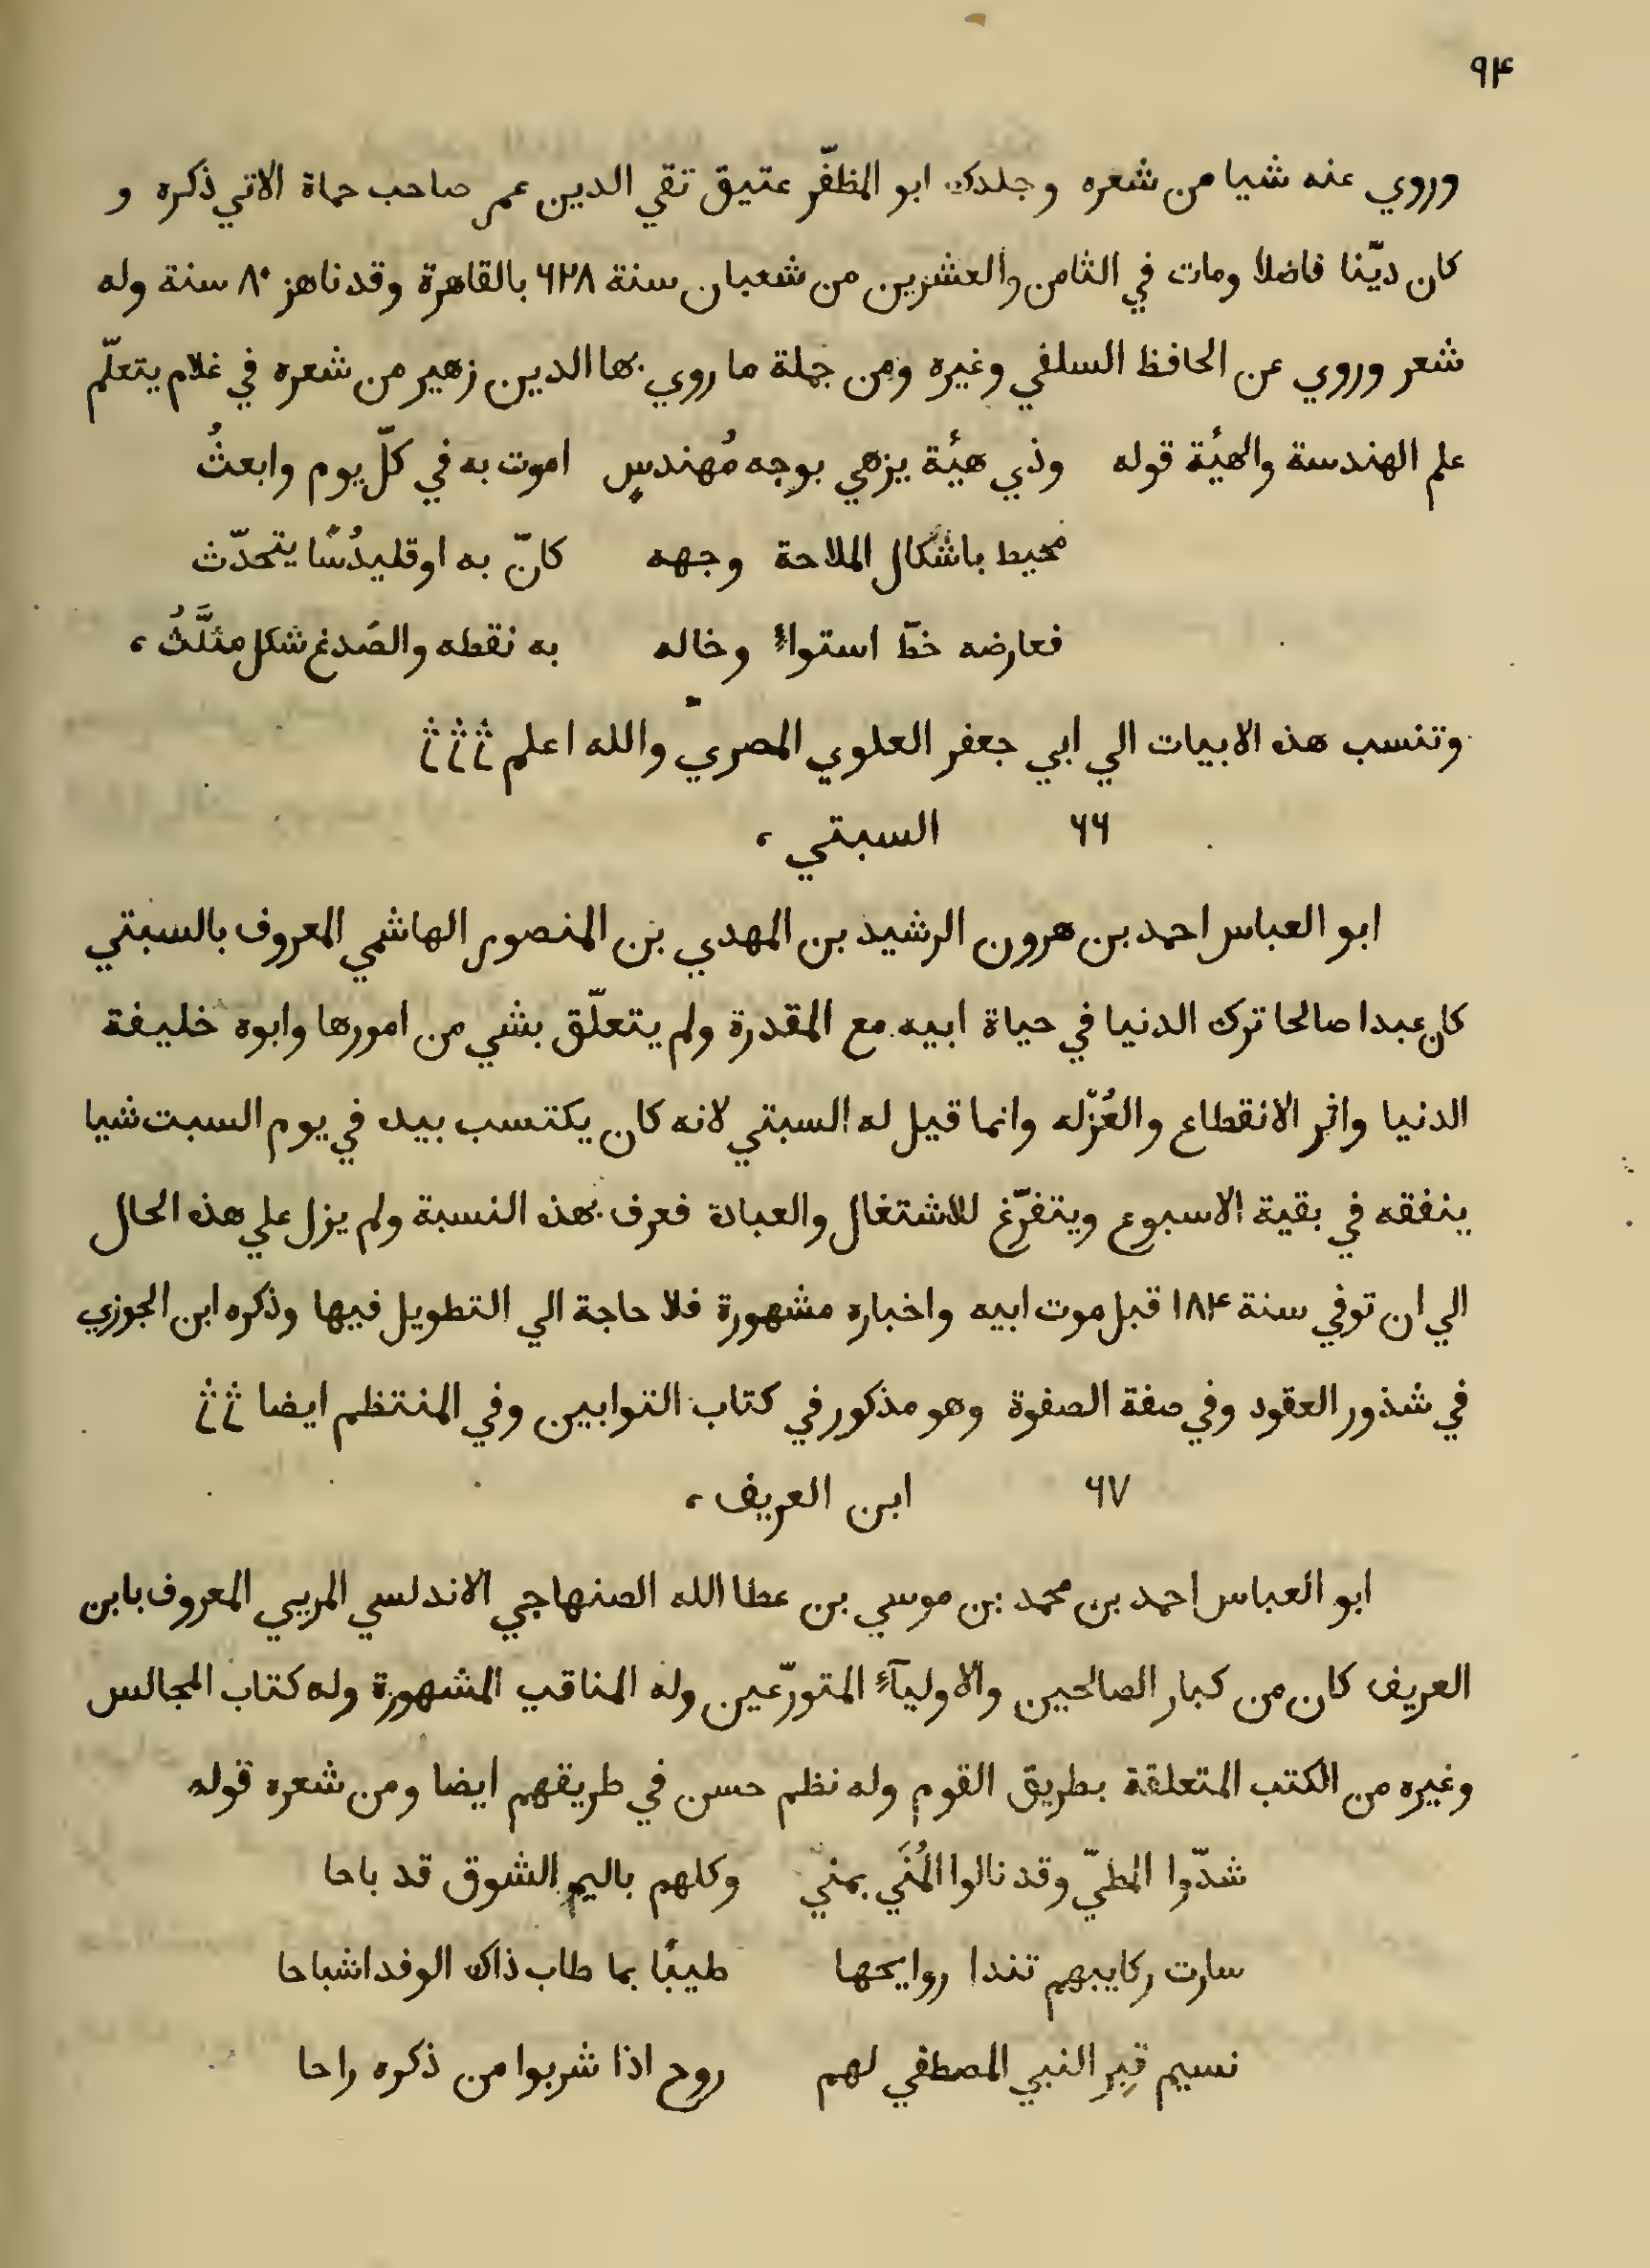 ٩۴
وروي عنه شيا من شعره وجلدك ابو المظفّر عتيق تقي الدين عمر صاحب حماة الاتي ذكره و
كان ديّنا فاضلا ومات في الثامن والعشرين من شعبان سنة ٦٢٨ بالقاهرة وقد ناهز ٨٠ سنة وله
شعر وروي عن الحافظ السلفي وغيره ومن جملة ما روي بها الدين زهير من شعره في غلام يتعلّم
علم الهندسة والهئة قوله وذي هئة يزهي بوجه مُهندسٍ اموت به في كلّ يوم وابعثُ
محيط باشكال الملاحة وجهه كانّ به اوقليدُسًا يتحدّث
فعارضه خطّ استواءٔ وخاله به نقطه والصُدغ شكل مثلَّثُ ،
وتنسب هذه الابيات الي ابي جعفر العلوي المصري والله اعلم ݣ ݣ ݣ
٦٦ السبتي ،
ابو العباس احمد بن هرون الرشيد بن المهدي بن المنصور الهاشمي المعروف بالسبتي
كان عبدا صالحا ترك الدنيا في حياة ابيه مع المقدرة ولم يتعلّق بشي من امورها وابوه خليفة
الدنيا واثر الانقطاع والعُزّله وانما قيل له السبتي لانه كان يكتسب بيده في يوم السبت شيا
ينفقه في بقية الاسبوع ويتفرّغ للاشتغال والعبادة فعرف بهذه النسبة ولم يزل علي هذه الحال
الي ان توفي سنة ١٨۴ قبل موت ابيه واخباره مشهورة فلا حاجة الي التطويل فيها وذكره ابن الجوزي
في شذور العقود وفي صفة الصفوة وهو مذكور في كتاب التوابين وفي المنتظم ايضا
٦٧ ابن العريف ،
ابو العباس احمد بن محمد بن موسي بن عطا الله الصنهاجي الاندلسي المريي المعروف بابن
العريف كان من كبار الصالحين والاوليآءٔ المتورّعين وله المناقب المشهورة وله كتاب المجالس
وغيره من الكتب المتعلقة بطريق القوم وله نظم حسن في طريقهم ايضا ومن شعره قوله
شدّوا المطيّ وقد نالوا المُنَي بمنيً وكلهم باليم الشوق قد باحا
سارت ركايبهم تندا روايحها طيبًا بما طاب ذاك الوفد اشباحا
نسيم قبر النبي المصطفي لهم روح اذا شربوا من ذكره راحا